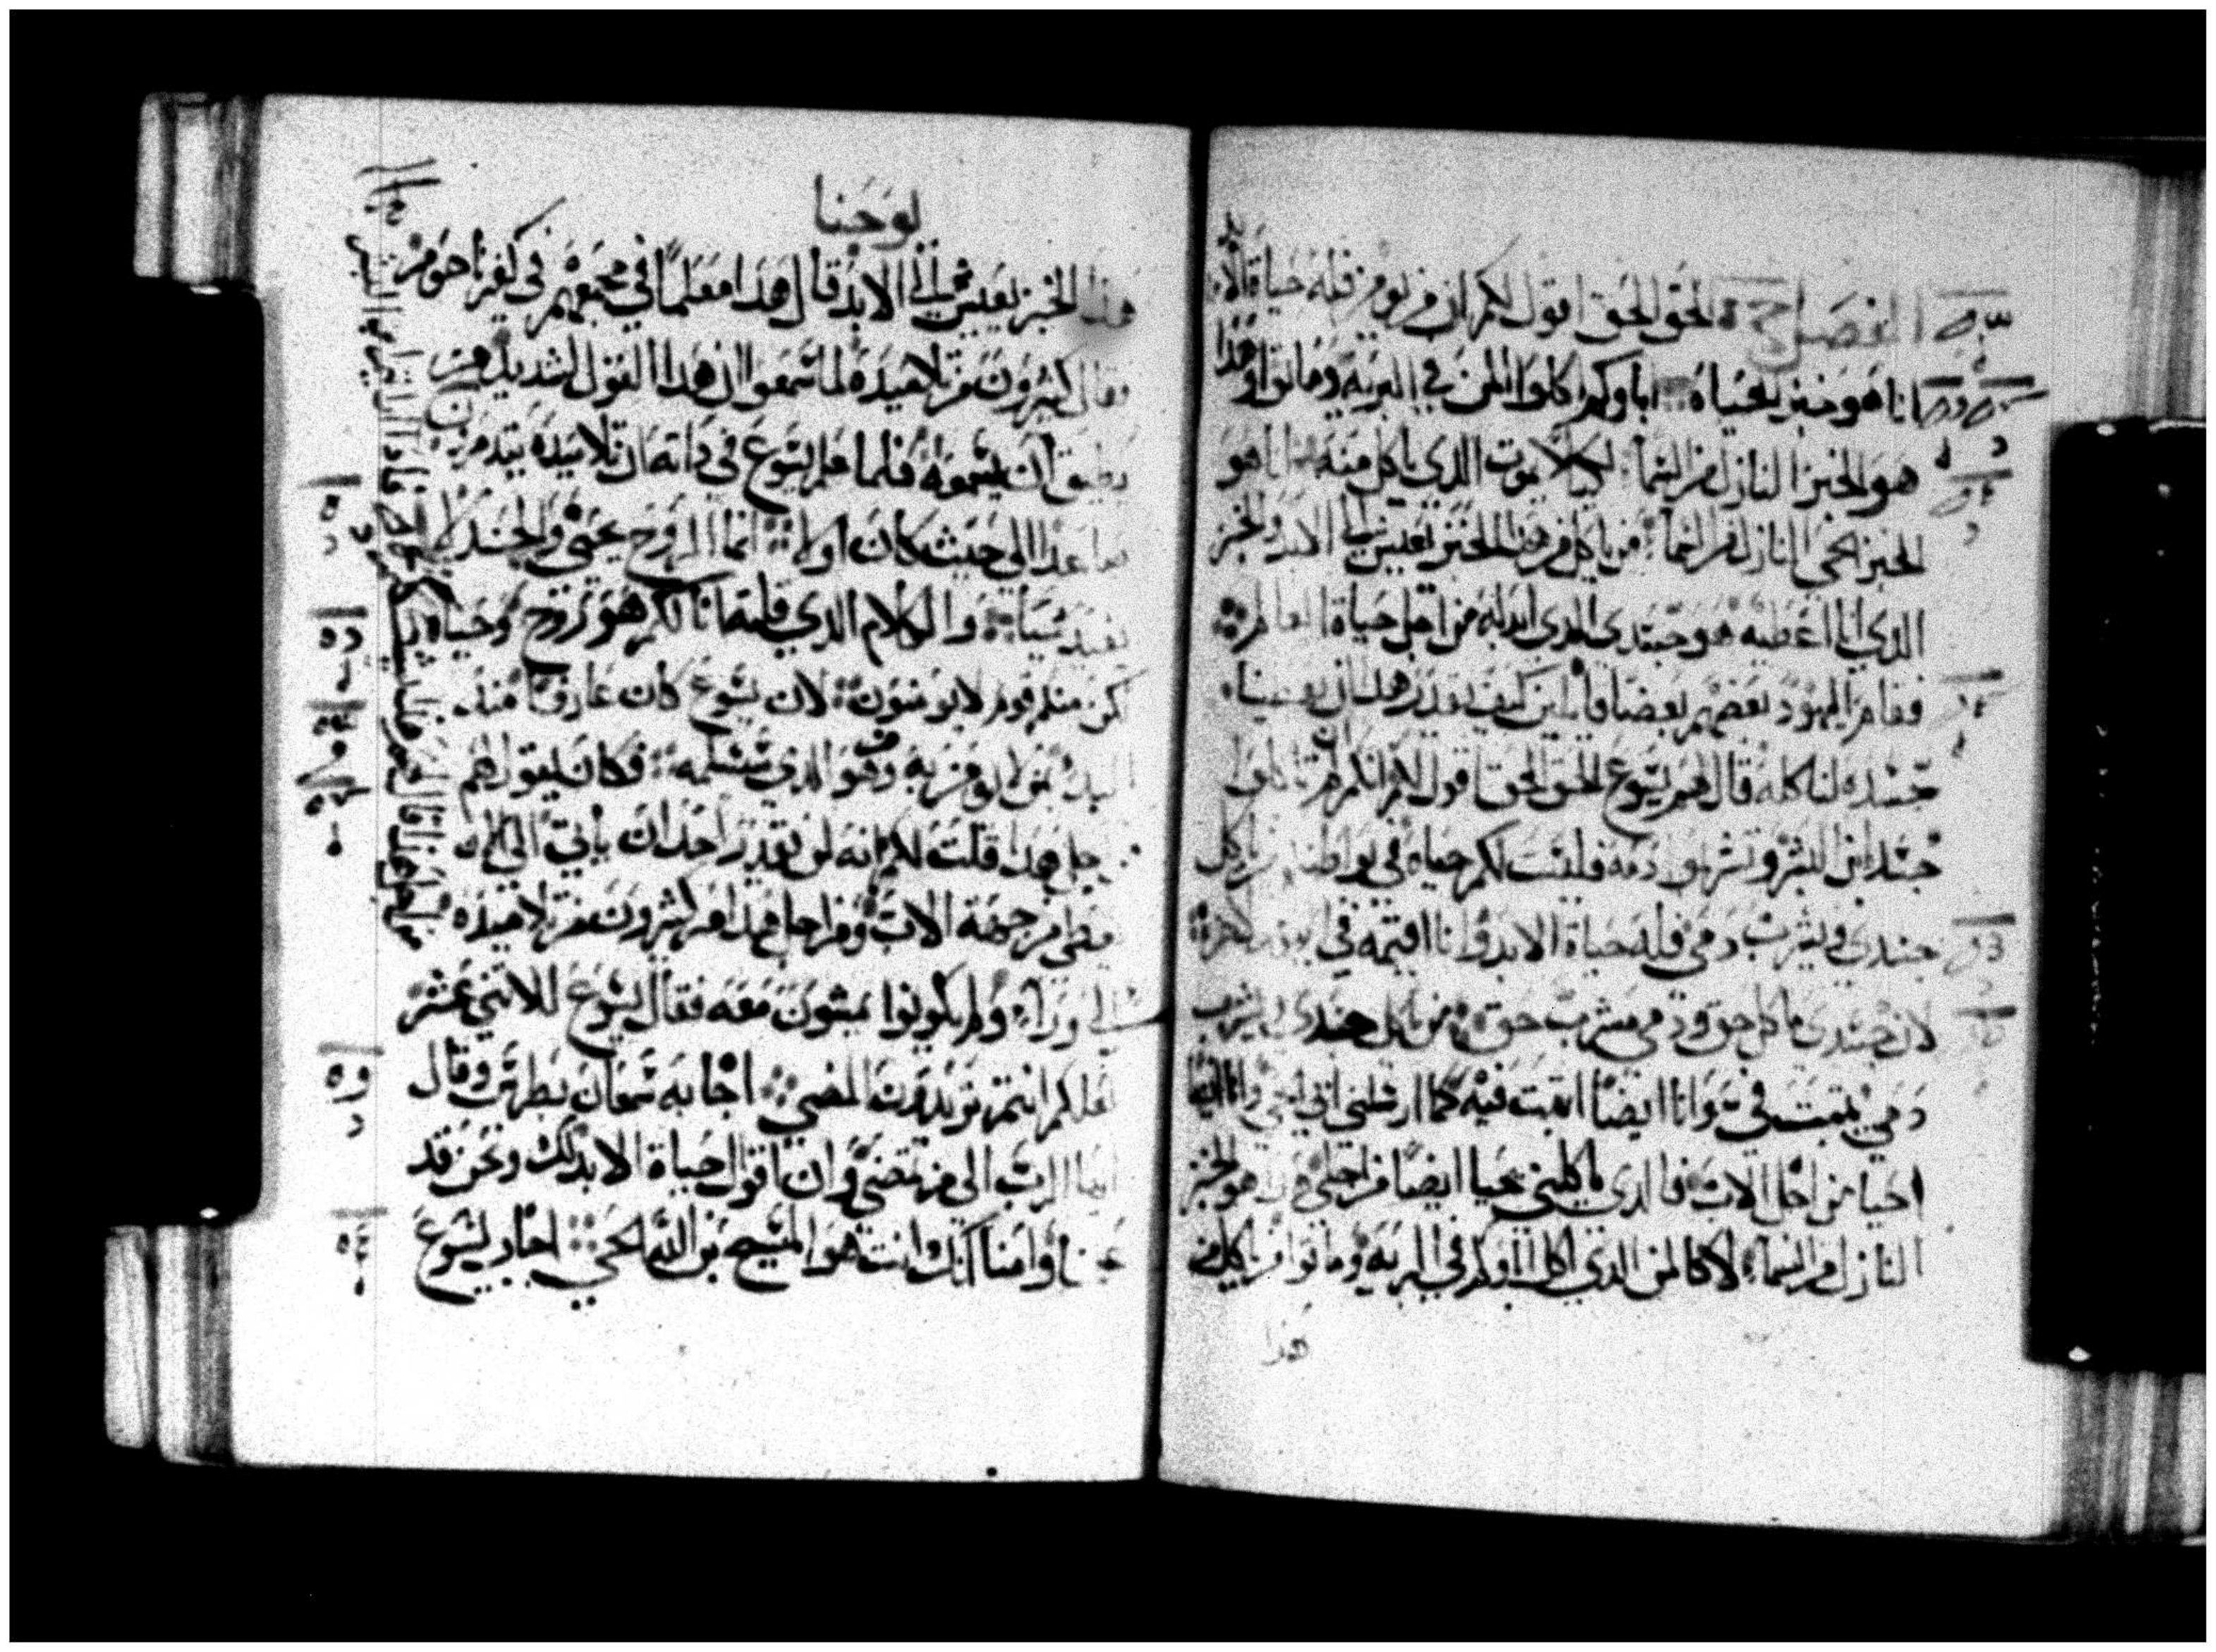 الفصل الحق الحق اقول لكم ان من يومن فله حياة الابد
انا هو خبز الحياة اباوكم اكلوا المن في البريه وماتوا وهذا
هو الخبز النازل من السما لكيلا يموت الذي ياكل منه انا هو
الخبز الحي النازل من السما من ياكل من هذا الخبز يعيش الي الابد والخبز
الذي انا اعطيه هو جسدي الذي ابدله من اجل حياة العالم
فقام اليهود بعضهم بعضا قايلين كيف يقدر هذا ان يعطينا
جسده لناكله قال لهم يسوع الحق الحق اقول لكم ان لم تاكلوا
جسد ابن البشر وتشربوا دمه فليست لكم حياه في من ياكل
جسدي ويشرب دمي فله حياة الابد وانا اقيمه في
لان جسدي ماكل حق ودمي مشرب حق من ياكل جسدي ويشرب
دمي يثبت في وانا ايضا اثبت فيه كما ارسلني ابي الحي وانا ايضا
احيا من اجل الاب فالذي ياكلني يحيا ايضا من اجلي هذا هو الخبز
النازل من السما لا كالمن الذي اكل اباوكم في البريه وماتوا من ياكل من
هدا
يوحنا
هذا الخبز يعيش الي الابد قال هدا معلما في مجمعهم في كفرناحوم
وقال كثيرون من تلاميده لما سمعوا ان هدا القول لشديد من
يطيق ان يسمعه فلما علم يسوع في داته ان تلاميده يتدمرون
صاعدا الي حيث كان اولا انما الروح يحيي والجسد لا
يفيد شيا والكلام الذي قلته انا لكم هو روح وحياه
لكن منكم قوم لا يومنون لان يسوع كان عارفا مند
البدء بمن لا يومن به ومن هو الذي سيسلمه فكان يقول لهم
من اجل هدا قلت لكم انه لن يقدر احد ان ياتي الي الا ان
يعطى من جهة الاب ومن اجل هدا مر كثيرون من تلاميده
الي ورا ولم يكونوا يمشون معه فقال يسوع للاثني عشر
لعلكم انتم تريدون المضي اجابه سمعان بطرس وقال
يا رب الي من نمضي وان اقوال حياة الابد لك ونحن قد
وامنا انك انت هو المسيح بن الله الحي اجاب يسوع